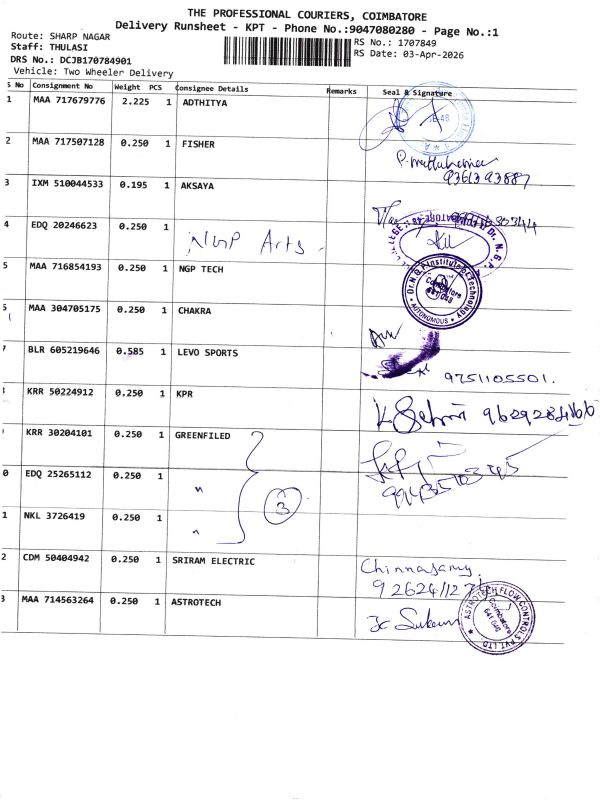 THE PROFESSIONAL COURIERS, COIMBATORE
Delivery Runsheet - KPT - Phone No.:9047080280 - Page No.:1
Route: SHARP NAGAR
Staff: THULASI
DRS No.: DCJB170784901
Vehicle: Two Wheeler Delivery
RS No.: 1707849
RS Date: 03-Apr-2026
S No Consignment No Weight PCS Consignee Details Remarks Seal & Signature
1 MAA 717679776 2.225 1 ADTHITYA
2 MAA 717507128 0.250 1 FISHER
9361393887
3 IXM 510044533 0.195 1 AKSAYA
4 EDQ 20246623 0.250 1 NGP Arts
5 MAA 716854193 0.250 1 NGP TECH
Dr. N.G.P. Institute of Technology
Coimbatore
641 048
AUTONOMOUS
6 MAA 304705175 0.250 1 CHAKRA
7 BLR 605219646 0.585 1 LEVO SPORTS
9751105501.
8 KRR 50224912 0.250 1 KPR
KRR 30204101 0.250 1 GREENFILED
0 EDQ 25265112 0.250 1 "
3
1 NKL 3726419 0.250 1 "
2 CDM 50404942 0.250 1 SRIRAM ELECTRIC
Chinnasamy
3 MAA 714563264 0.250 1 ASTROTECH
ASTROTECH FLOW CONTROLS PVT LTD
Coimbatore
641 048